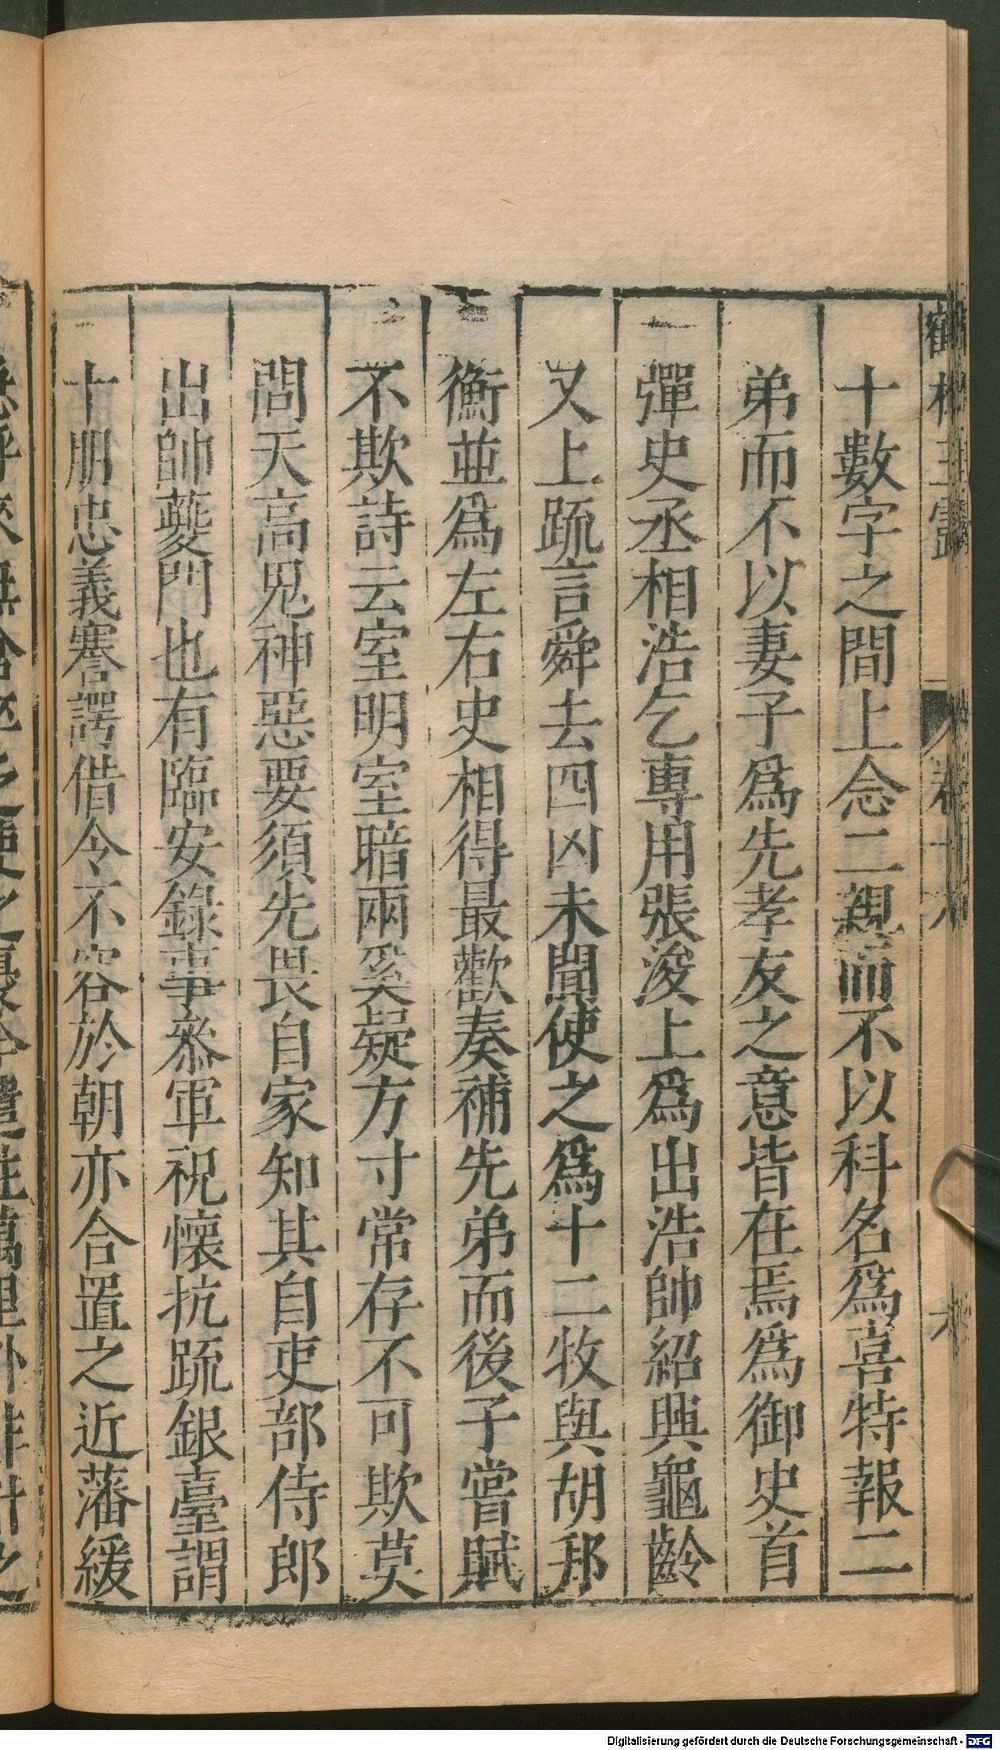 十數字之間上念二親而不以科名爲喜特報二
弟而不以妻子爲先孝友之意皆在焉爲御史首
彈史丞相浩乞專用張浚上爲出浩帥紹興龜齡
又上疏言舜去四凶未聞使之爲十二牧與胡邦
衡並爲左右史相得最歡奏補先弟而後子嘗賦
不欺詩云室明室暗兩奚疑方寸常存不可欺莫
問天高鬼神惡要須先畏自家知其自吏部侍郎
出帥夔門也有臨安錄事叅軍祝懷抗疏銀臺謂
十朋忠義謇諤借令不容於朝亦合置之近藩緩
Digitalisierung gefördert durch die Deutsche Forschungsgemeinschaft - DFG